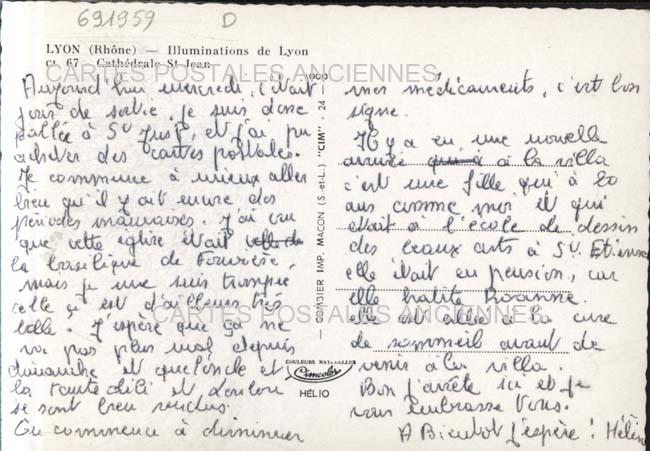 691959 D
LYON (Rhône) — Illuminations de Lyon
CT. 67 - Cathédrale St-Jean
CARTES POSTALES ANCIENNES
Aujourd'hui mercredi, c'était
jour de sortie, je suis donc
allée à St Just, et j'ai pu
acheter des cartes postales.
Je commence à mieux aller
bien qu'il y ait encore des
périodes mauvaises. J'ai cru
que cette église était celle de
la basilique de Fourvière,
mais je me suis trompée
celle çi est d'ailleurs très
belle. J'espère que ça ne
va pas plus mal depuis
dimanche et que l'oncle et
la tante Lili et
se sont bien rendus.
On commence à diminuer
mes médicaments, c'est bon
signe.
Il y a eu une nouvelle
arrivée à la villa
c'est une fille qui a 20
ans comme moi et qui
était à l'école de dessin
des beaux arts à St. Etienne
elle était en pension, car
elle habite Roanne.
CARTES POSTALES ANCIENNES
Elle est allée à la cure
de sommeil avant de
venir à la villa.
Bon j'arrête ici et je
vous embrasse tous.
A Bientôt j'espère ! Hélène
COMBIER IMP. MACON (S.-et-L.) "CIM"
COULEURS NATURELLES
Cimcolor
HÉLIO